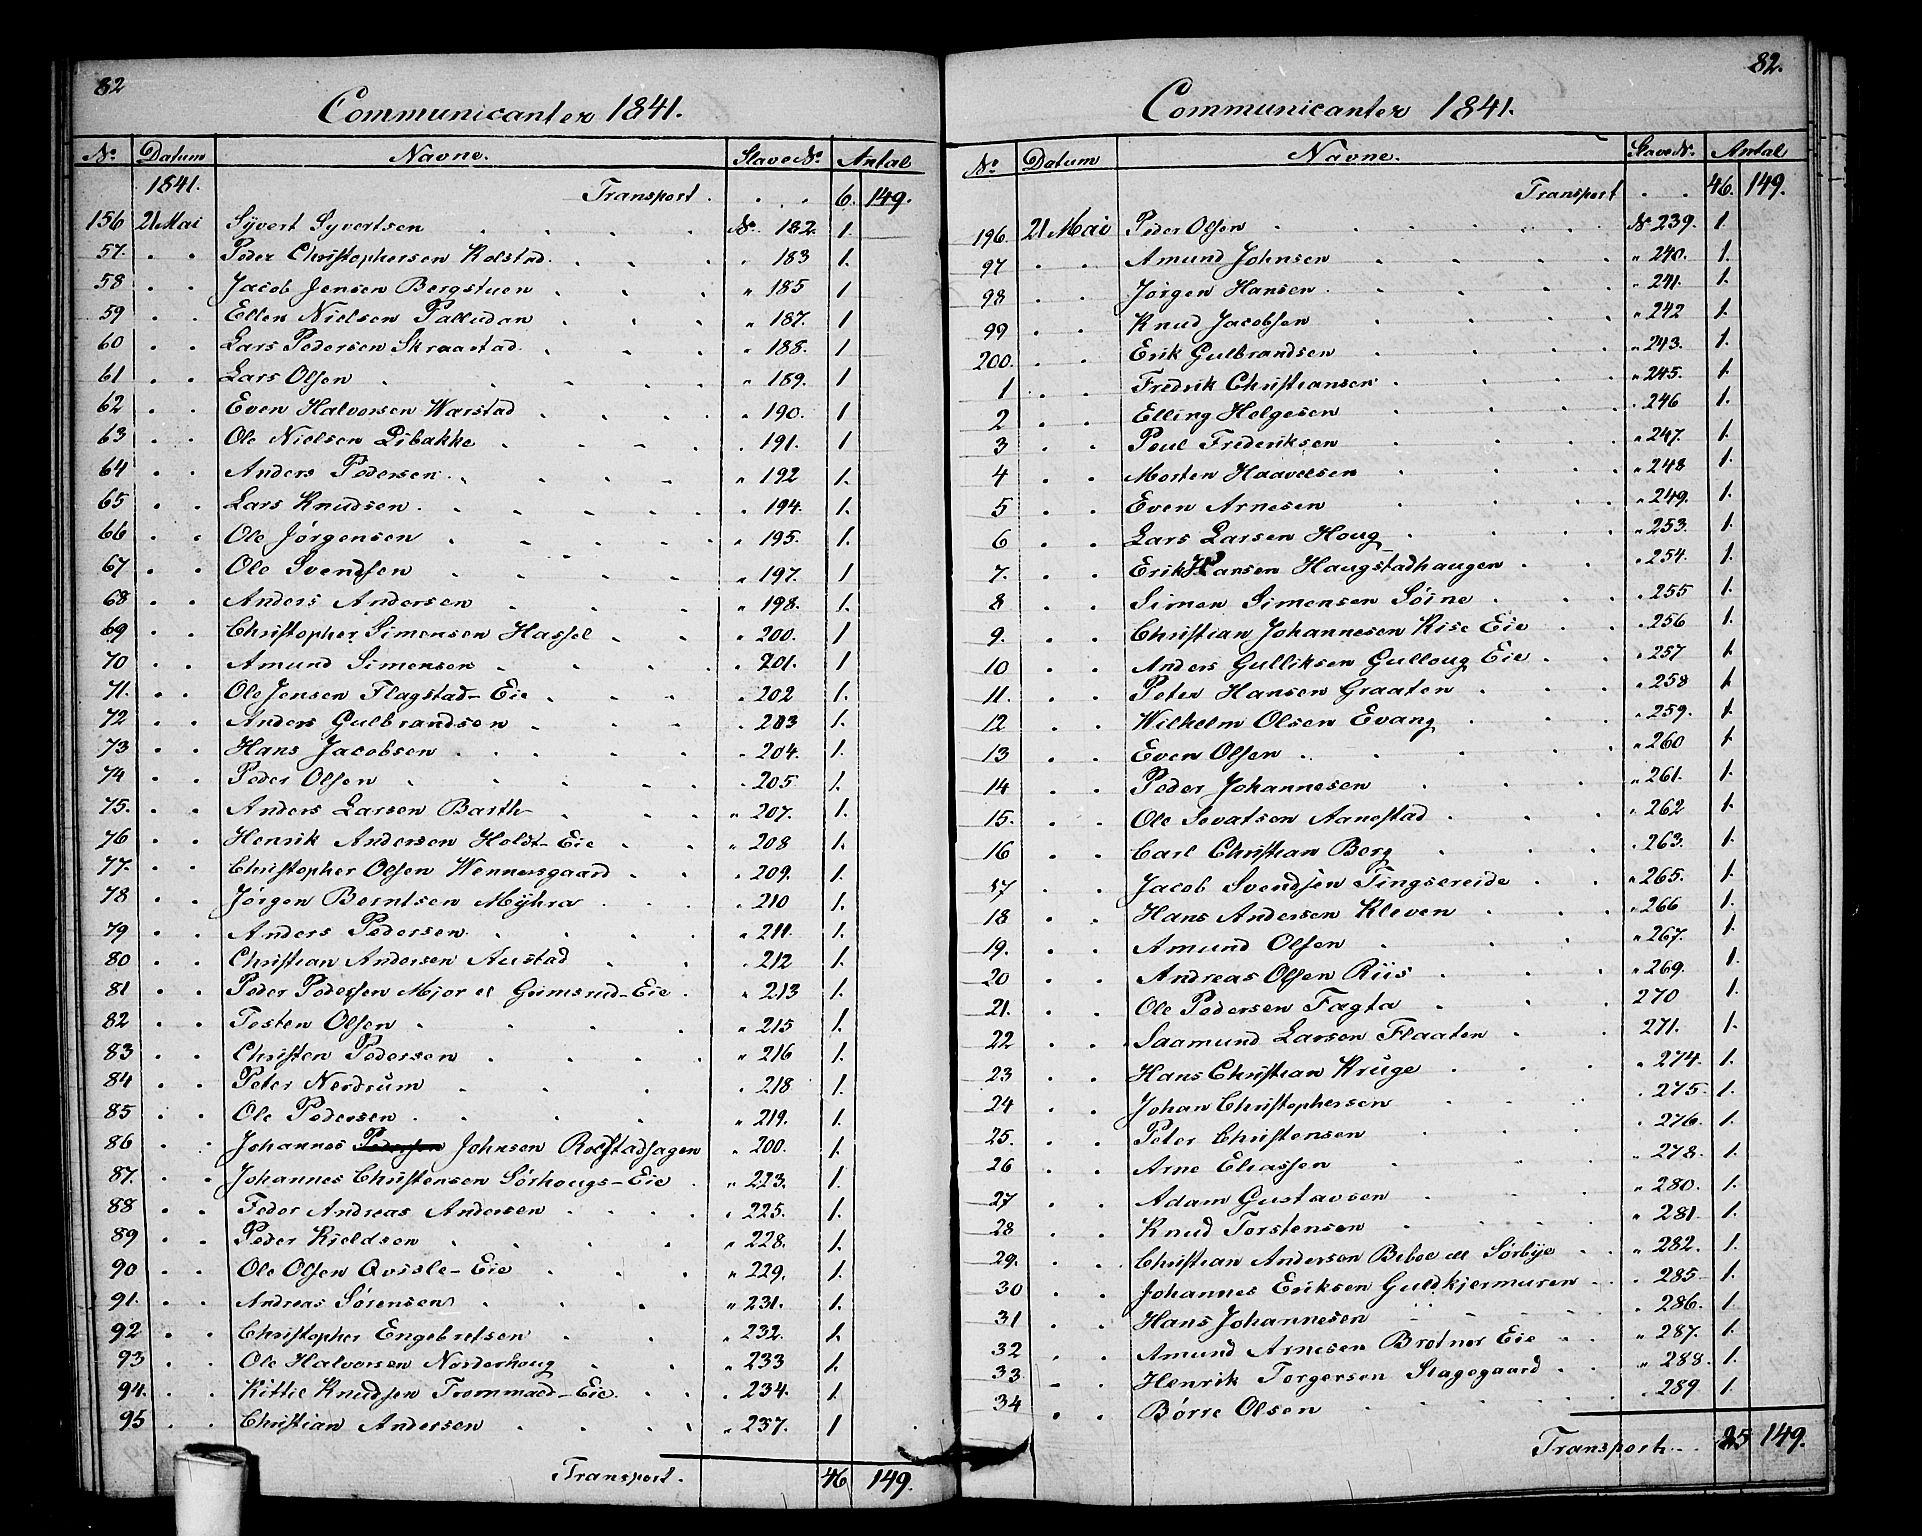 82
Communicanter 1841.
No. Datum Navne. Slave No. Antal
1841. Transport . . . 6. 149.
156 21 Mai Syvert Syvertsen No. 182. 1.
57. Peder Christophersen Rolstad. 183 1.
58 Jacob Jensen Bergstuen " 185 1
59 Ellen Nielsen Palludan " 187. 1
60 Lars Pedersen Skraastad. " 188. 1
61 Lars Olsen " 189. 1
62 Even Halvorsen Warstad " 190. 1
63 Ole Nielsen Libakke 191. 1
64 Anders Pedersen. " 192 1.
65 Lars Knudsen. " 194. 1.
66 Ole Jørgensen " 195. 1.
67 Ole Svendsen " 197. 1
68 Anders Andersen " 198. 1.
69 Christopher Simensen Hassel " 200. 1
70 Amund Simensen " 201. 1
71. Ole Jensen Flagstad-Eie " 202 1.
72 Anders Gulbrandsen 203 1.
73 Hans Jacobsen " 204. 1.
74 Peder Olsen " 205 1.
75. Anders Larsen Barth " 207. 1.
76 Henrik Andersen Holst-Eie " 208 1.
77. Christopher Olsen Wennersgaard " 209. 1.
78 Jørgen Berntsen Myhra " 210 1.
79 Anders Pedersen. " 211. 1.
80 Christian Andersen Austad 212 1.
81 Peder Pedersen Mjør el Grimsrud-Eie " 213 1.
82 Tosten Olsen " 215 1.
83 Christen Pedersen " 216 1.
84 Peter Nordrum " 218 1.
85 Ole Pedersen " 219. 1.
86 Johannes Pedersen Johnsen Rolstadsagen " 200. 1.
87. Johannes Christensen Sørhougs-Eie " 223. 1.
88 Feder Andreas Andersen 225. 1.
89 Peder Kieldsen " 228. 1.
90 Ole Olsen Qvisle-Eie " 229. 1.
91. Andreas Sørensen " 231. 1.
92 Christopher Engebretsen " 232. 1.
93 Ole Halvorsen Norderhoug " 233 1.
94. Kittil Knudsen Trommald-Eie. " 234. 1.
95 Christian Andersen " 237. 1
Transport. 46 149.
82.
Communicanter 1841.
No. Datum Navne. Slave No. Antal
Transport . . 46. 149.
196. 21 Mai Peder Olsen No 239. 1.
97 Amund Johnsen " 240. 1.
98 Jørgen Hansen " 241. 1.
99 Knud Jacobsen " 242 1.
200. Erik Gulbrandsen " 243. 1.
1 Fredrik Christiansen " 245. 1.
2 Elling Helgesen 246 1.
3 Poul Frederiksen " 247. 1.
4 Morten Haavelsen " 248 1.
5 Even Arnesen " 249. 1.
6 Lars Larsen Houg " 253. 1.
7. Erik Hansen Haugstadhaugen " 254. 1.
8 Simen Simensen Søine " 255 1.
9. Christian Johannesen Rise Eie " 256 1.
10 Anders Gulliksen Gulloug Eie " 257 1.
11. Peter Hansen Graaten " 258 1.
12 Wilhelm Olsen Evang " 259. 1.
13 Even Olsen " 260 1.
14 Peder Johannesen " 261. 1.
15. Ole Sevatsen Aanestad " 262 1.
16 Carl Christian Berg 263. 1.
17 Jacob Svendsen Tingsereide " 265. 1.
18 Hans Andersen Kleven " 266 1.
19. Amund Olsen " 267. 1.
20 Andreas Olsen Riis " 269. 1.
21. Ole Pedersen Fagta 270 1.
22 Saamund Larsen Flaaten 271. 1.
23 Hans Christian Kruge " 274. 1.
24 Johan Christophersen 275. 1.
25. Peter Christensen " 276. 1.
26 Arne Eliassen " 278. 1.
27 Adam Gustavsen " 280. 1.
28 Knud Torstensen " 281. 1.
29. Christian Andersen Beboe el Sørbye " 282. 1.
30 Johannes Eriksen Guldkjermuren " 285 1.
31 Hans Johannesen " 286. 1.
32 Amund Arnesen Brotner Eie " 287. 1.
33 Henrik Torgersen Stagegaard " 288. 1.
34 Børre Olsen 289 1.
Transport. 85 149.